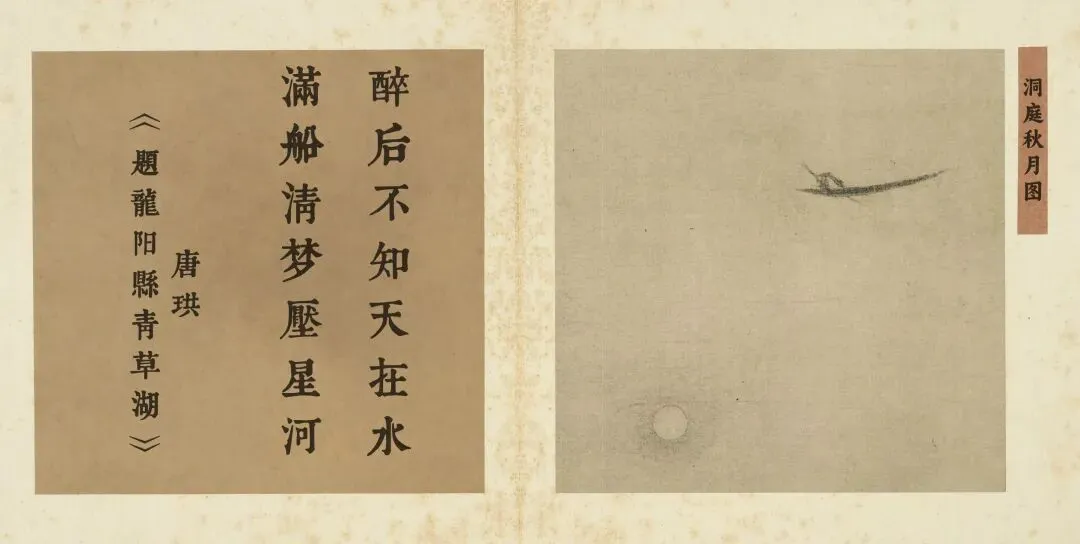 洞庭秋月图
醉后不知天在水
滿船清梦壓星河
唐珙
《題龍阳縣青草湖》